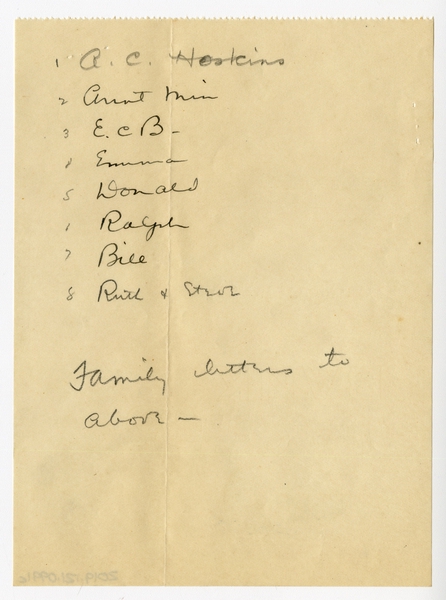 1 A. C. Hoskins
2 Aunt Min
3 E. C B -
4 Emma
5 Donald
1 Ralph
7 Bill
8 Ruth & Steve
Family letters to
above -